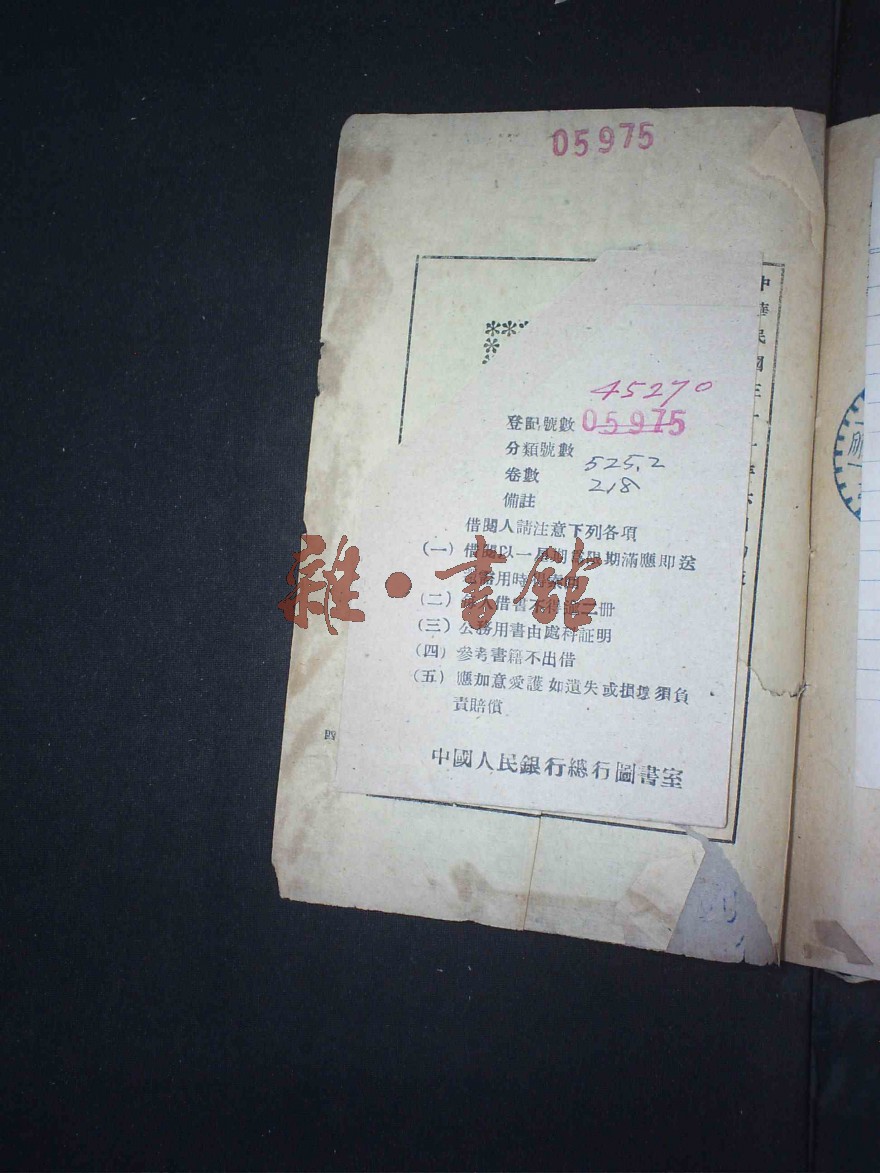 05975
中華民國三十
45270
登記號數 05975
分類號數 525.2
卷數 218
備註
借閱人請注意下列各項
(一) 借閱以一星期為限期滿應即送
(二) 每人借書不得逾二冊
(三) 公務用書由處科証明
(四) 參考書籍不出借
(五) 應加意愛護如遺失或損壞須負
責賠償
四
中國人民銀行總行圖書室
雜·書館